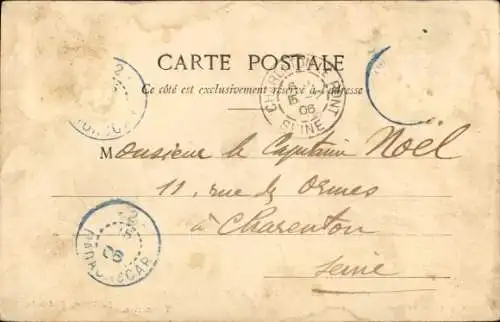 CARTE POSTALE
Ce côté est exclusivement réservé à l'adresse
CHARENTON LE PONT
06
SEINE
Monsieur le Capitaine Noël
11, rue des Ormes
à Charenton
Seine
MADAGASCAR
06